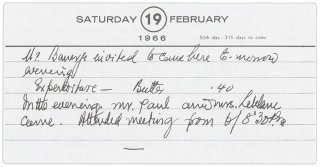 SATURDAY 19 FEBRUARY
1966
50th day - 315 days to come
Mr Banerji invited to come here to-morrow
evening
Expenditure — Butter .40
In the evening, Mr. Paul and Mrs. Leblanc
came. Attended meeting from 6/8:30 P.m
—